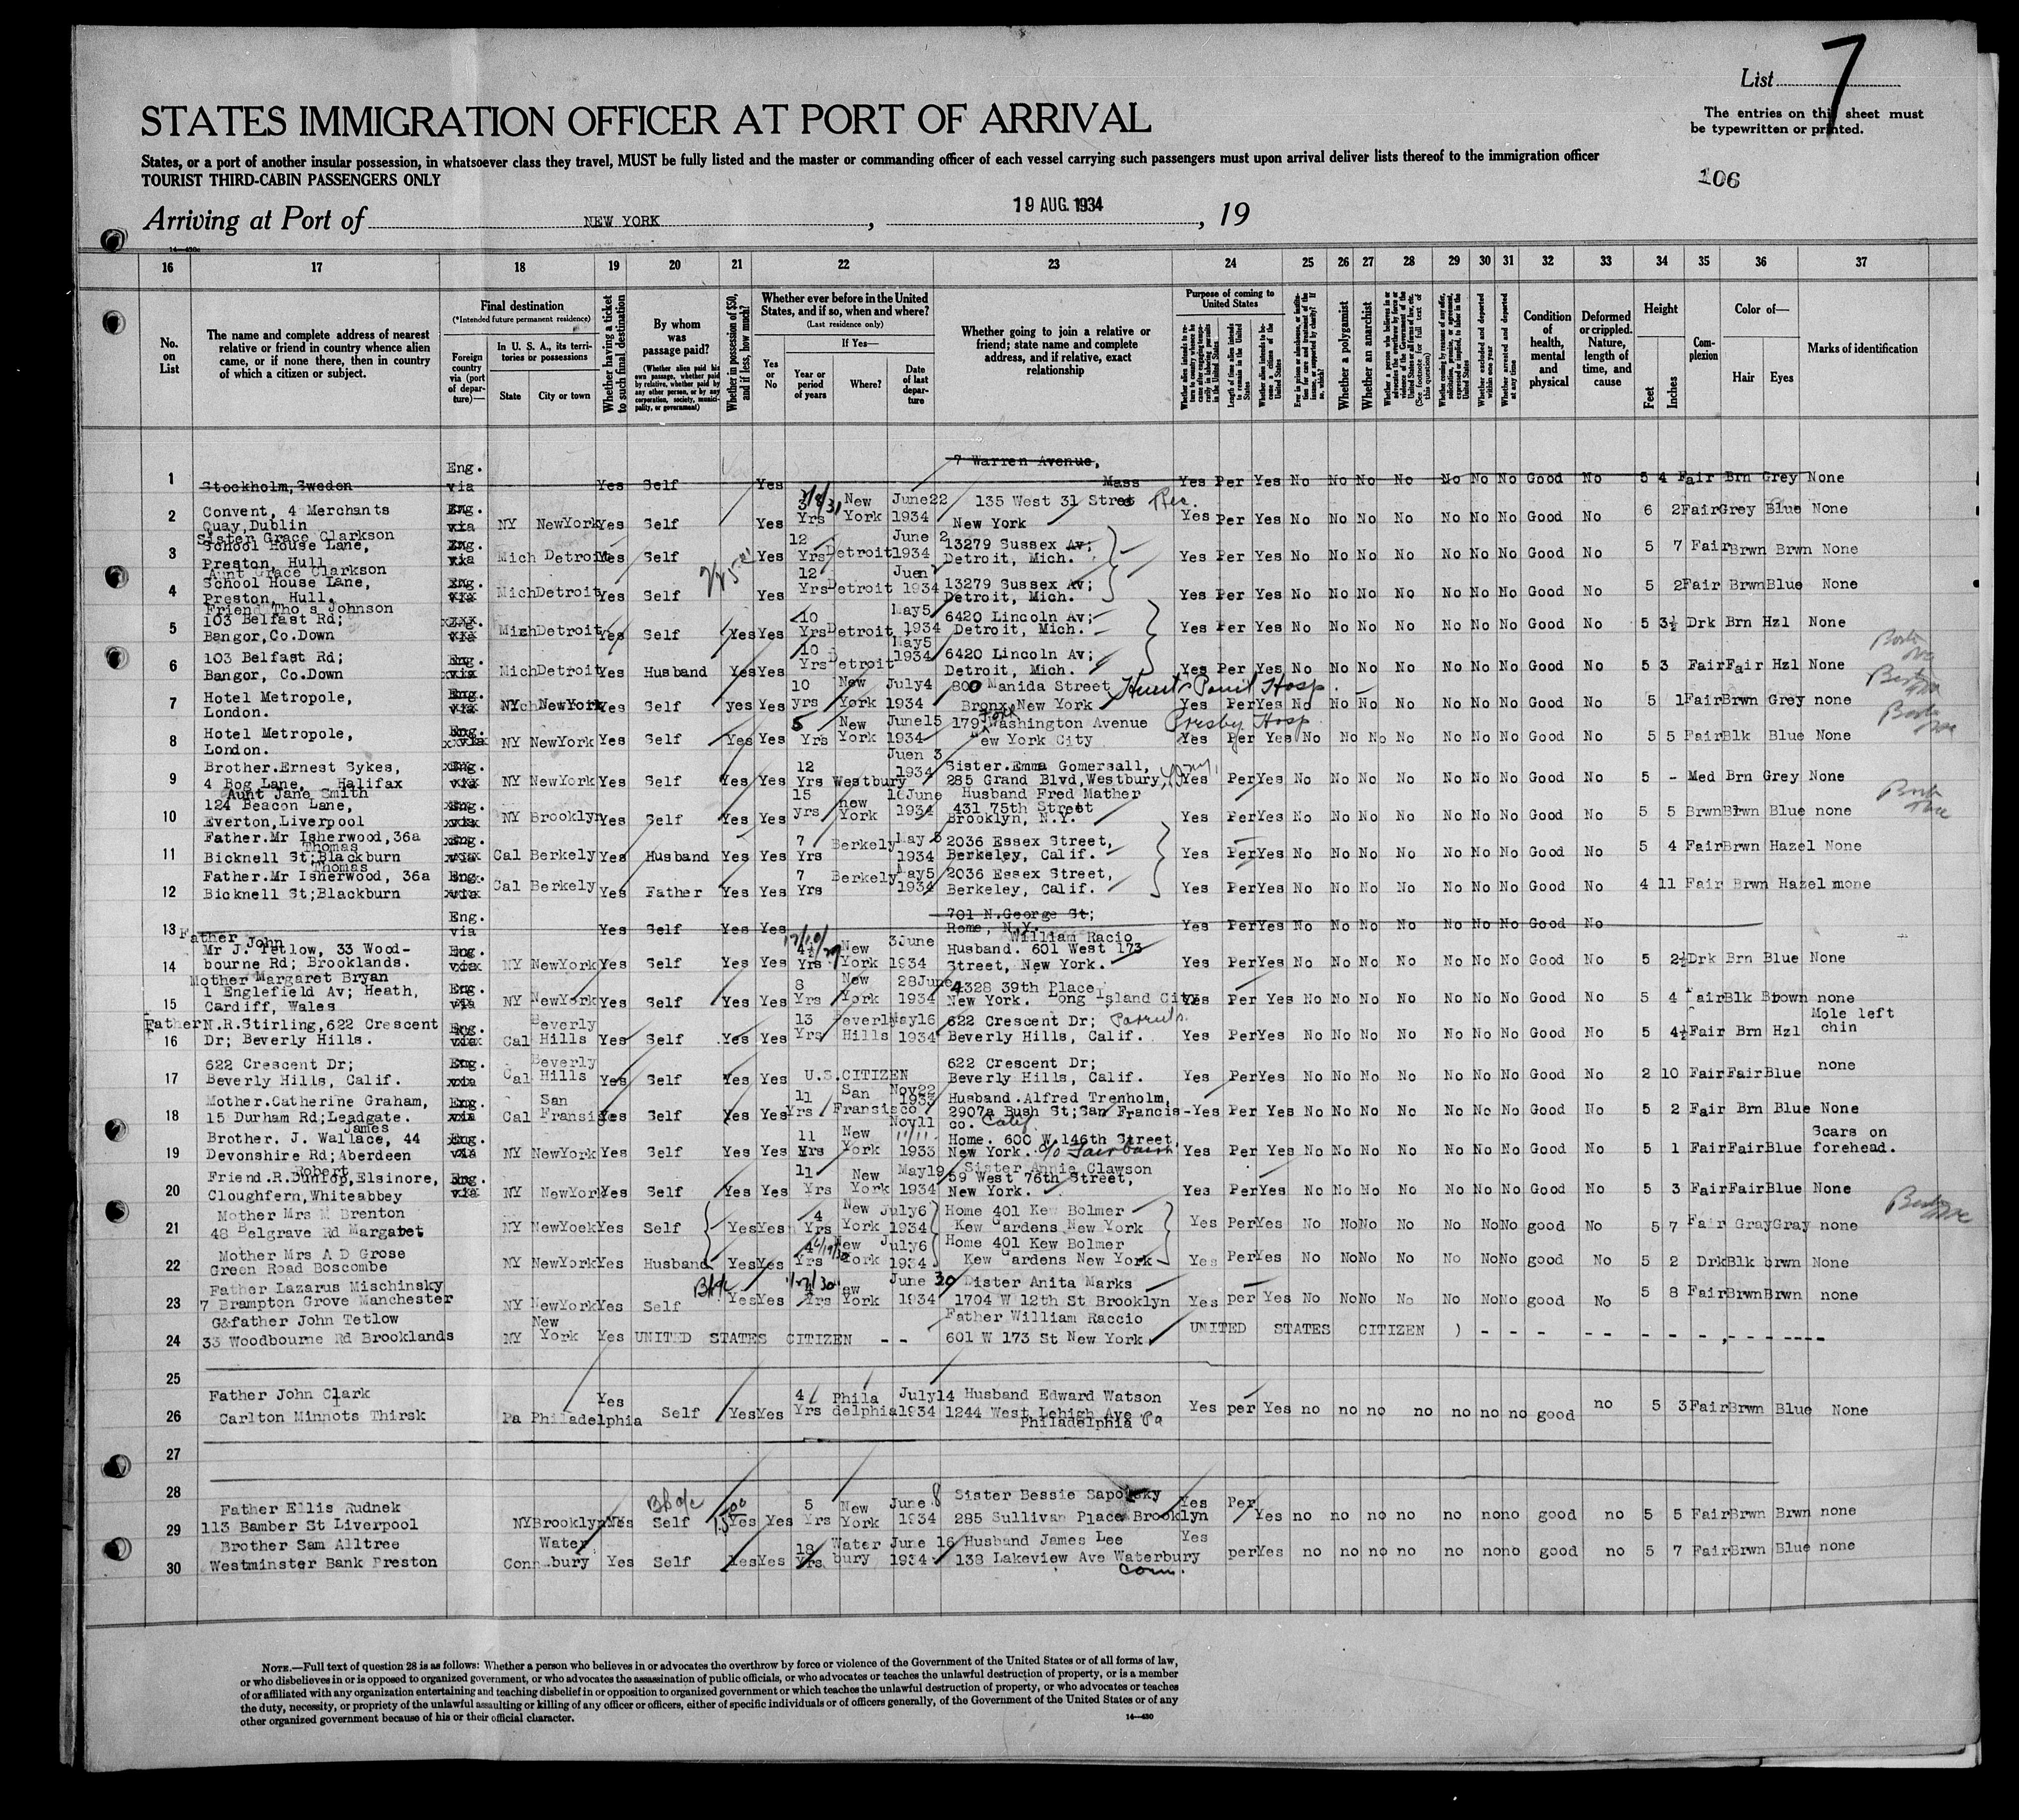 List 7
STATES IMMIGRATION OFFICER AT PORT OF ARRIVAL
The entries on this sheet must
be typewritten or printed.
States, or a port of another insular possession, in whatsoever class they travel, MUST be fully listed and the master or commanding officer of each vessel carrying such passengers must upon arrival deliver lists thereof to the immigration officer
TOURIST THIRD-CABIN PASSENGERS ONLY
106
Arriving at Port of NEW YORK, 19 AUG. 1934, 19
16 17 18 19 20 21 22 23 24 25 26 27 28 29 30 31 32 33 34 35 36 37
No. on List
The name and complete address of nearest relative or friend in country whence alien came, or if none there, then in country of which a citizen or subject.
Final destination
(*Intended future permanent residence)
Foreign country via (port of departure)—
In U. S. A., its territories or possessions
State
City or town
Whether having a ticket to such final destination
By whom was passage paid?
(Whether alien paid his own passage, whether paid by relative, whether paid by any other person, or by any corporation, society, municipality, or government)
Whether in possession of $50, and if less, how much?
Whether ever before in the United States, and if so, when and where?
(Last residence only)
Yes or No
If Yes—
Year or period of years
Where?
Date of last departure
Whether going to join a relative or friend; state name and complete address, and if relative, exact relationship
Purpose of coming to United States
Length of time alien intends to remain in the United States
Whether alien intends to become a citizen of the United States
Whether a polygamist
Whether an anarchist
Whether excluded and deported within one year
Whether arrested and deported at any time
Condition of health, mental and physical
Deformed or crippled. Nature, length of time, and cause
Height
Feet
Inches
Complexion
Color of—
Hair
Eyes
Marks of identification
7 Warren Avenue,
1 Stockholm, Sweden Eng. via Yes Self Yes Mass Yes Per Yes No No No No No No No Good No 5 4 Fair Brn Grey None
2 Convent, 4 Merchants Quay, Dublin Eng. via NY NewYork Yes Self Yes 3 Yrs New York June22 1934 135 West 31 Street New York Yes Per Yes No No No No No No No Good No 6 2 Fair Grey Blue None
Sister Grace Clarkson
3 School House Lane, Preston, Hull Eng. via Mich Detroit Yes Self Yes 12 Yrs Detroit June 2 1934 13279 Sussex Av; Detroit, Mich. Yes Per Yes No No No No No No No Good No 5 7 Fair Brwn Brwn None
Aunt Grace Clarkson
4 School House Lane, Preston, Hull. Eng. via Mich Detroit Yes Self Yes 12 Yrs Detroit Juen 2 1934 13279 Sussex Av; Detroit, Mich. Yes Per Yes No No No No No No No Good No 5 2 Fair Brwn Blue None
Friend Tho s Johnson
5 103 Belfast Rd; Bangor, Co.Down via Mich Detroit Yes Self Yes Yes 10 Yrs Detroit May5 1934 6420 Lincoln Av; Detroit, Mich. Yes Per Yes No No No No No No No Good No 5 3½ Drk Brn Hzl None
6 103 Belfast Rd; Bangor, Co.Down Eng. via Mich Detroit Yes Husband Yes Yes 10 Yrs Detroit May5 1934 6420 Lincoln Av; Detroit, Mich. Yes Per Yes No No No No No No No Good No 5 3 Fair Fair Hzl None
7 Hotel Metropole, London. Eng. via NY NewYork Yes Self yes Yes 10 yrs New York July4 1934 800 Manida Street Bronx, New York Hunts Point Hosp. Yes Per Yes No No No No No No No Good No 5 1 Fair Brwn Grey none
8 Hotel Metropole, London. Eng. via NY NewYork Yes Self Yes Yes 5 Yrs New York June15 1934 179 Fort Washington Avenue New York City Presby Hosp Yes Per Yes No No No No No No No Good No 5 5 Fair Blk Blue None
9 Brother.Ernest Sykes, 4 Bog Lane, Halifax Eng. via NY NewYork Yes Self Yes Yes 12 Yrs Westbury Juen 3 1934 Sister.Emma Gomersall, 285 Grand Blvd, Westbury, Yes Per Yes No No No No No No No Good No 5 - Med Brn Grey None
Aunt Jane Smith
10 124 Beacon Lane, Everton, Liverpool Eng. via NY Brooklyn Yes Self Yes Yes 15 yrs new York 16June 1934 Husband Fred Mather 431 75th Street Brooklyn, N.Y. Yes Per Yes No No No No No No No Good No 5 5 Brwn Brwn Blue none
11 Father.Mr Thomas Isherwood, 36a Bicknell St; Blackburn Eng. via Cal Berkely Yes Husband Yes Yes 7 Yrs Berkely May 5 1934 2036 Essex Street, Berkeley, Calif. Yes Per Yes No No No No No No No Good No 5 4 Fair Brwn Hazel None
12 Father.Mr Thomas Isherwood, 36a Bicknell St; Blackburn Eng. via Cal Berkely Yes Father Yes Yes 7 Yrs Berkely May5 1934 2036 Essex Street, Berkeley, Calif. Yes Per Yes No No No No No No No Good No 4 11 Fair Brwn Hazel mone
13 Eng. via Yes Self Yes Yes 701 N.George St; Rome, N.Y. Yes Per Yes No No No No No No No Good No
14 Father John Mr J. Tetlow, 33 Woodbourne Rd; Brooklands. Eng. via NY NewYork Yes Self Yes Yes 4½ Yrs New York 3June 1934 William Racio Husband. 601 West 173 Street, New York. Yes Per Yes No No No No No No No Good No 5 2½ Drk Brn Blue None
15 Mother Margaret Bryan 1 Englefield Av; Heath, Cardiff, Wales Eng. via NY NewYork Yes Self Yes Yes 8 Yrs New York 28June 1934 4328 39th Place New York. Long Island City Yes Per Yes No No No No No No No Good No 5 4 Fair Blk Brown none
16 Father N.R.Stirling, 622 Crescent Dr; Beverly Hills. Eng. via Cal Beverly Hills Yes Self Yes Yes 13 Yrs Beverly Hills May16 1934 622 Crescent Dr; Beverly Hills, Calif. Parents. Yes Per Yes No No No No No No No Good No 5 4½ Fair Brn Hzl Mole left chin
17 622 Crescent Dr; Beverly Hills, Calif. Eng. via Cal Beverly Hills Yes Self Yes Yes U.S.CITIZEN 622 Crescent Dr; Beverly Hills, Calif. Yes Per Yes No No No No No No No Good No 2 10 Fair Fair Blue none
18 Mother.Catherine Graham, 15 Durham Rd; Leadgate. Eng. via Cal San Fransisco Yes Self Yes Yes 11 Yrs San Fransisco Nov22 1933 Husband.Alfred Trenholm, 2907a Bush St; San Francis-co. Calif Yes Per Yes No No No No No No No Good No 5 2 Fair Brn Blue None
19 Brother. James J. Wallace, 44 Devonshire Rd; Aberdeen Eng. via NY NewYork Yes Self Yes Yes 11 Yrs New York Nov11 1933 Home. 600 W 146th Street, New York. c/o Fairbairn Yes Per Yes No No No No No No No Good No 5 1 Fair Fair Blue Scars on forehead.
20 Friend.Robert R.Dunlop, Elsinore, Cloughfern, Whiteabbey Eng. via NY NewYork Yes Self Yes Yes 11 Yrs New York May19 1934 Sister Annie Clawson 59 West 76th Street, New York. Yes Per Yes No No No No No No No Good No 5 3 Fair Fair Blue None
21 Mother Mrs M Brenton 48 Belgrave Rd Margate NY NewYoek Yes Self Yes Yes 4 Yrs New York July6 1934 Home 401 Kew Bolmer Kew Gardens New York Yes Per Yes No No No No No No No good No 5 7 Fair Gray Gray none
22 Mother Mrs A D Grose Green Road Boscombe NY NewYork Yes Husband Yes Yes 4 Yrs New York July6 1934 Home 401 Kew Bolmer Kew Gardens New York Yes Per Yes No No No No No No No good No 5 2 Drk Blk brwn None
23 Father Lazarus Mischinsky 7 Brampton Grove Manchester NY NewYork Yes Self Yes Yes 4 Yrs New York June 30 1934 Sister Anita Marks 1704 W 12th St Brooklyn Yes per Yes No No No No No No No good No 5 8 Fair Brwn Brwn none
24 G&father John Tetlow 33 Woodbourne Rd Brooklands NY New York Yes UNITED STATES CITIZEN - - Father William Raccio 601 W 173 St New York UNITED STATES CITIZEN ) - - - - - - - - - - - - - - -
25
26 Father John Clark Carlton Minnots Thirsk Pa Philadelphia Yes Self Yes Yes 4 Yrs Philadelphia July14 1934 Husband Edward Watson 1244 West Lehigh Ave Philadelphia Pa Yes per Yes no no no no no no no good no 5 3 Fair Brwn Blue None
27
28
29 Father Ellis Rudnek 113 Bamber St Liverpool NY Brooklyn Yes Self Yes Yes 5 Yrs New York June 8 1934 Sister Bessie Sapolsky 285 Sullivan Place Brooklyn Yes Per Yes no no no no no no no good no 5 5 Fair Brwn Brwn none
30 Brother Sam Alltree Westminster Bank Preston Conn Waterbury Yes Self Yes Yes 18 Yrs Waterbury June 16 1934 Husband James Lee 138 Lakeview Ave Waterbury Conn. Yes per Yes no no no no no no no good no 5 7 Fair Brwn Blue none
NOTE.—Full text of question 28 is as follows: Whether a person who believes in or advocates the overthrow by force or violence of the Government of the United States or of all forms of law,
or who disbelieves in or is opposed to organized government, or who advocates the assassination of public officials, or who advocates or teaches the unlawful destruction of property, or is a member
of or affiliated with any organization entertaining and teaching disbelief in or opposition to organized government or which teaches the unlawful destruction of property, or who advocates or teaches
the duty, necessity, or propriety of the unlawful assaulting or killing of any officer or officers, either of specific individuals or of officers generally, of the Government of the United States or of any
other organized government because of his or their official character.
14—430